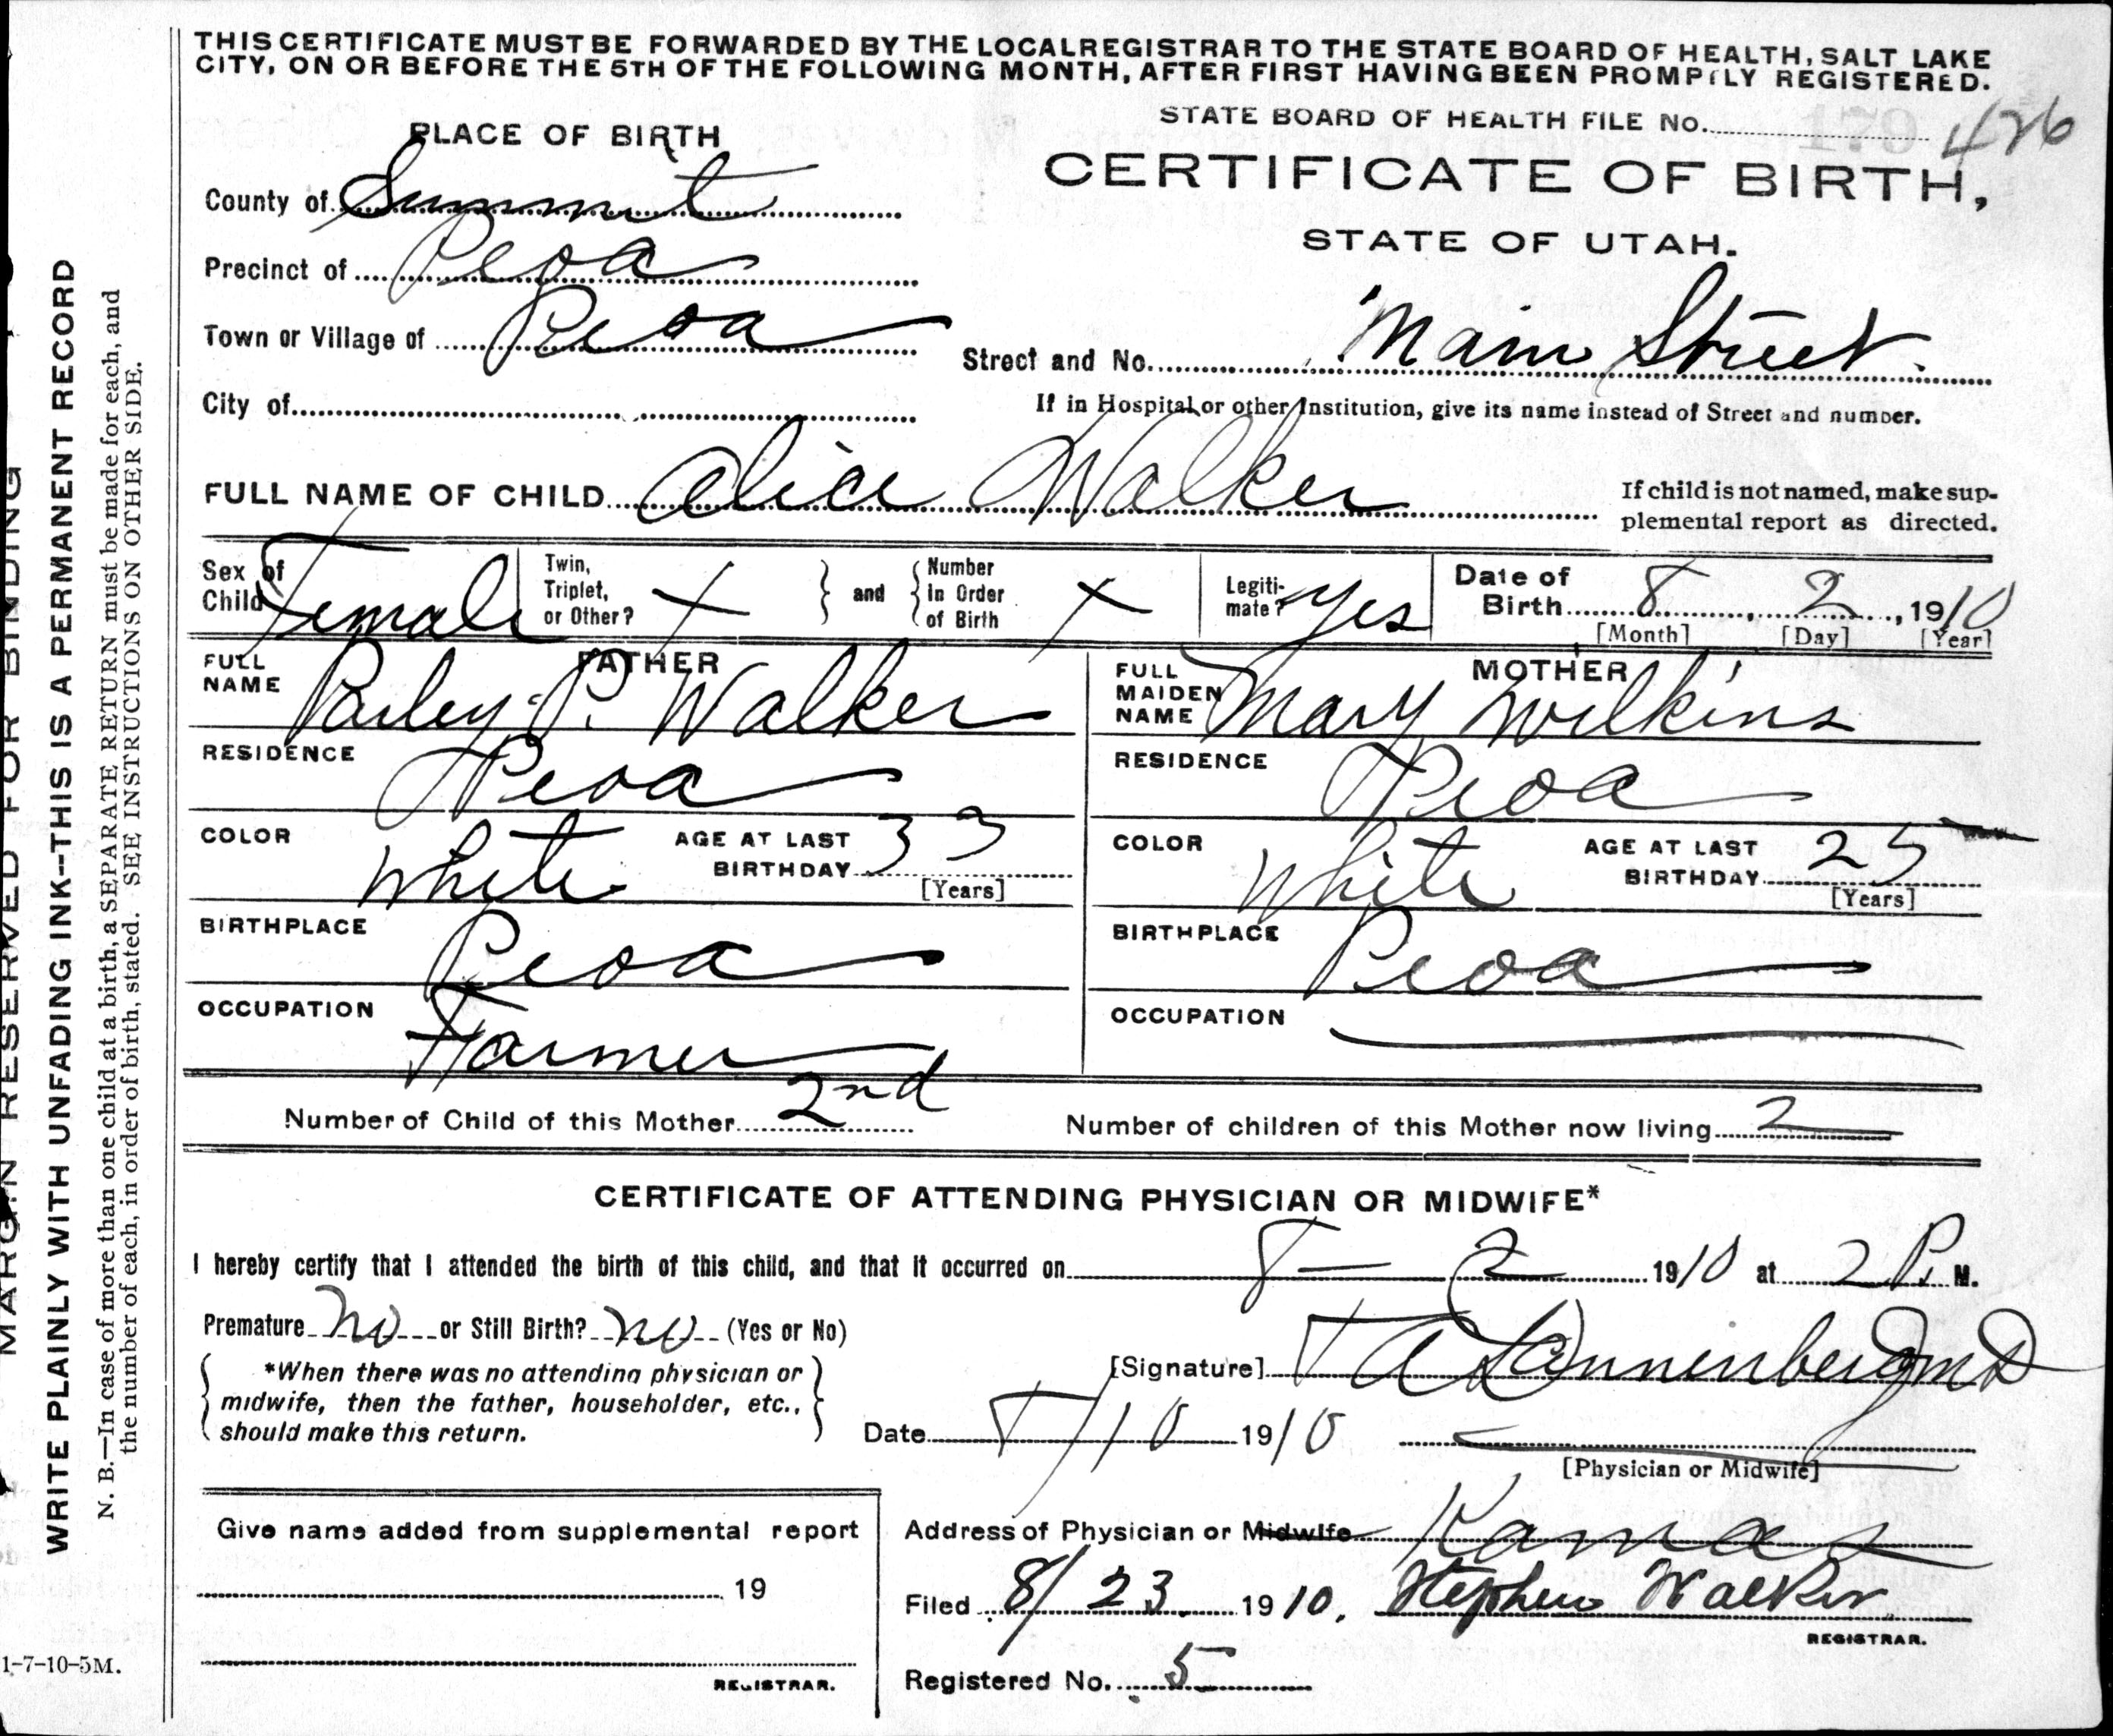 THIS CERTIFICATE MUST BE FORWARDED BY THE LOCAL REGISTRAR TO THE STATE BOARD OF HEALTH, SALT LAKE
CITY, ON OR BEFORE THE 5TH OF THE FOLLOWING MONTH, AFTER FIRST HAVING BEEN PROMPTLY REGISTERED.
STATE BOARD OF HEALTH FILE No. 426
PLACE OF BIRTH
CERTIFICATE OF BIRTH,
STATE OF UTAH.
County of Summit
Precinct of Peoa
Town or Village of Peoa
Street and No. Main Street.
City of
If in Hospital or other Institution, give its name instead of Street and number.
FULL NAME OF CHILD Alice Walker
If child is not named, make sup-
plemental report as directed.
Sex of Child Female
Twin, Triplet, or Other? X
and
Number In Order of Birth X
Legiti-mate? Yes
Date of Birth 8, 2, 1910
[Month] [Day] [Year]
FATHER
FULL NAME Parley P. Walker
RESIDENCE Peoa
COLOR White
AGE AT LAST BIRTHDAY 33
[Years]
BIRTHPLACE Peoa
OCCUPATION Farmer
MOTHER
FULL MAIDEN NAME Mary Wilkins
RESIDENCE Peoa
COLOR White
AGE AT LAST BIRTHDAY 25
[Years]
BIRTHPLACE Peoa
OCCUPATION
Number of Child of this Mother 2nd
Number of children of this Mother now living 2
CERTIFICATE OF ATTENDING PHYSICIAN OR MIDWIFE*
I hereby certify that I attended the birth of this child, and that it occurred on 8 - 2 1910 at 2 P. M.
Premature No or Still Birth? No (Yes or No)
*When there was no attending physician or
midwife, then the father, householder, etc.,
should make this return.
[Signature] T A Dannenberg MD
Date 8/10 1910
[Physician or Midwife]
Give name added from supplemental report
19
REGISTRAR.
Address of Physician or Midwife Kamas
Filed 8/23 1910. Stephen Walker
REGISTRAR.
Registered No. 5
MARGIN RESERVED FOR BINDING
WRITE PLAINLY WITH UNFADING INK--THIS IS A PERMANENT RECORD
N. B.—In case of more than one child at a birth, a SEPARATE RETURN must be made for each, and
the number of each, in order of birth, stated. SEE INSTRUCTIONS ON OTHER SIDE.
1-7-10-5M.